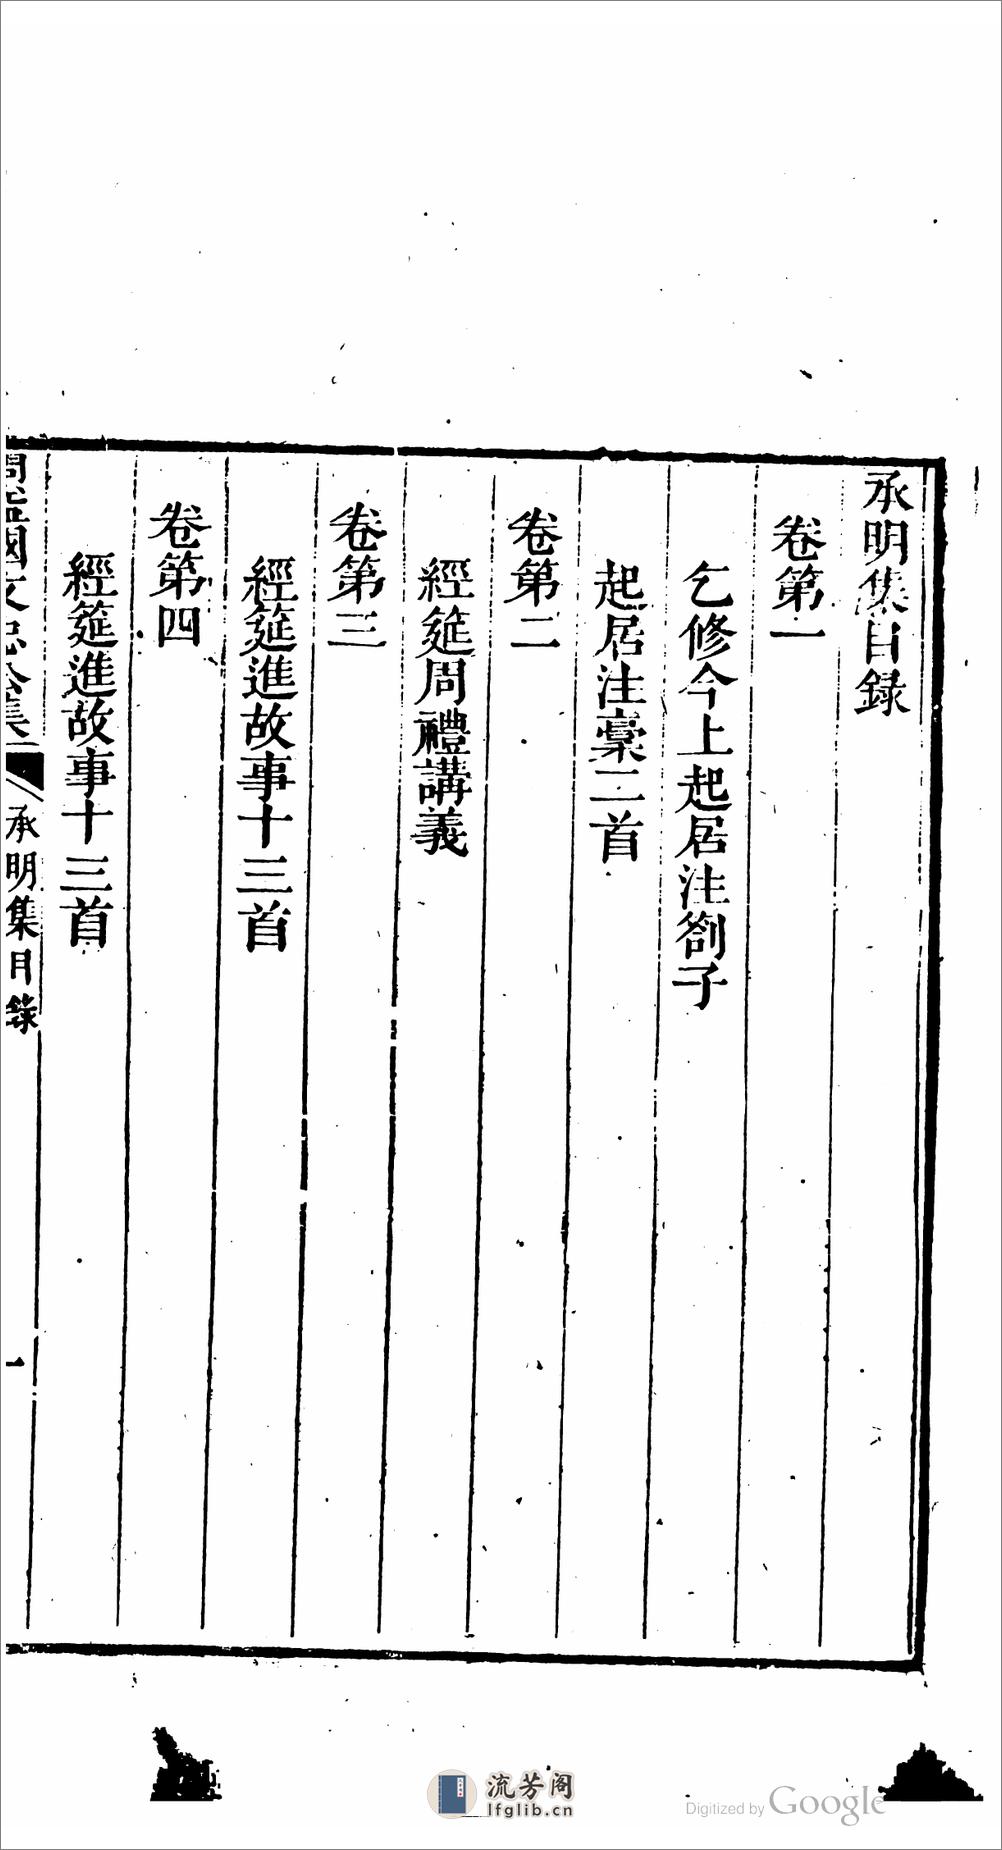 承明集目錄
卷第一
乞修今上起居注劄子
起居注稾二首
卷第二
經筵周禮講義
卷第三
經筵進故事十三首
卷第四
經筵進故事十三首
周益國文忠公集
承明集目錄
一
流芳阁
lfglib.cn
Digitized by Google